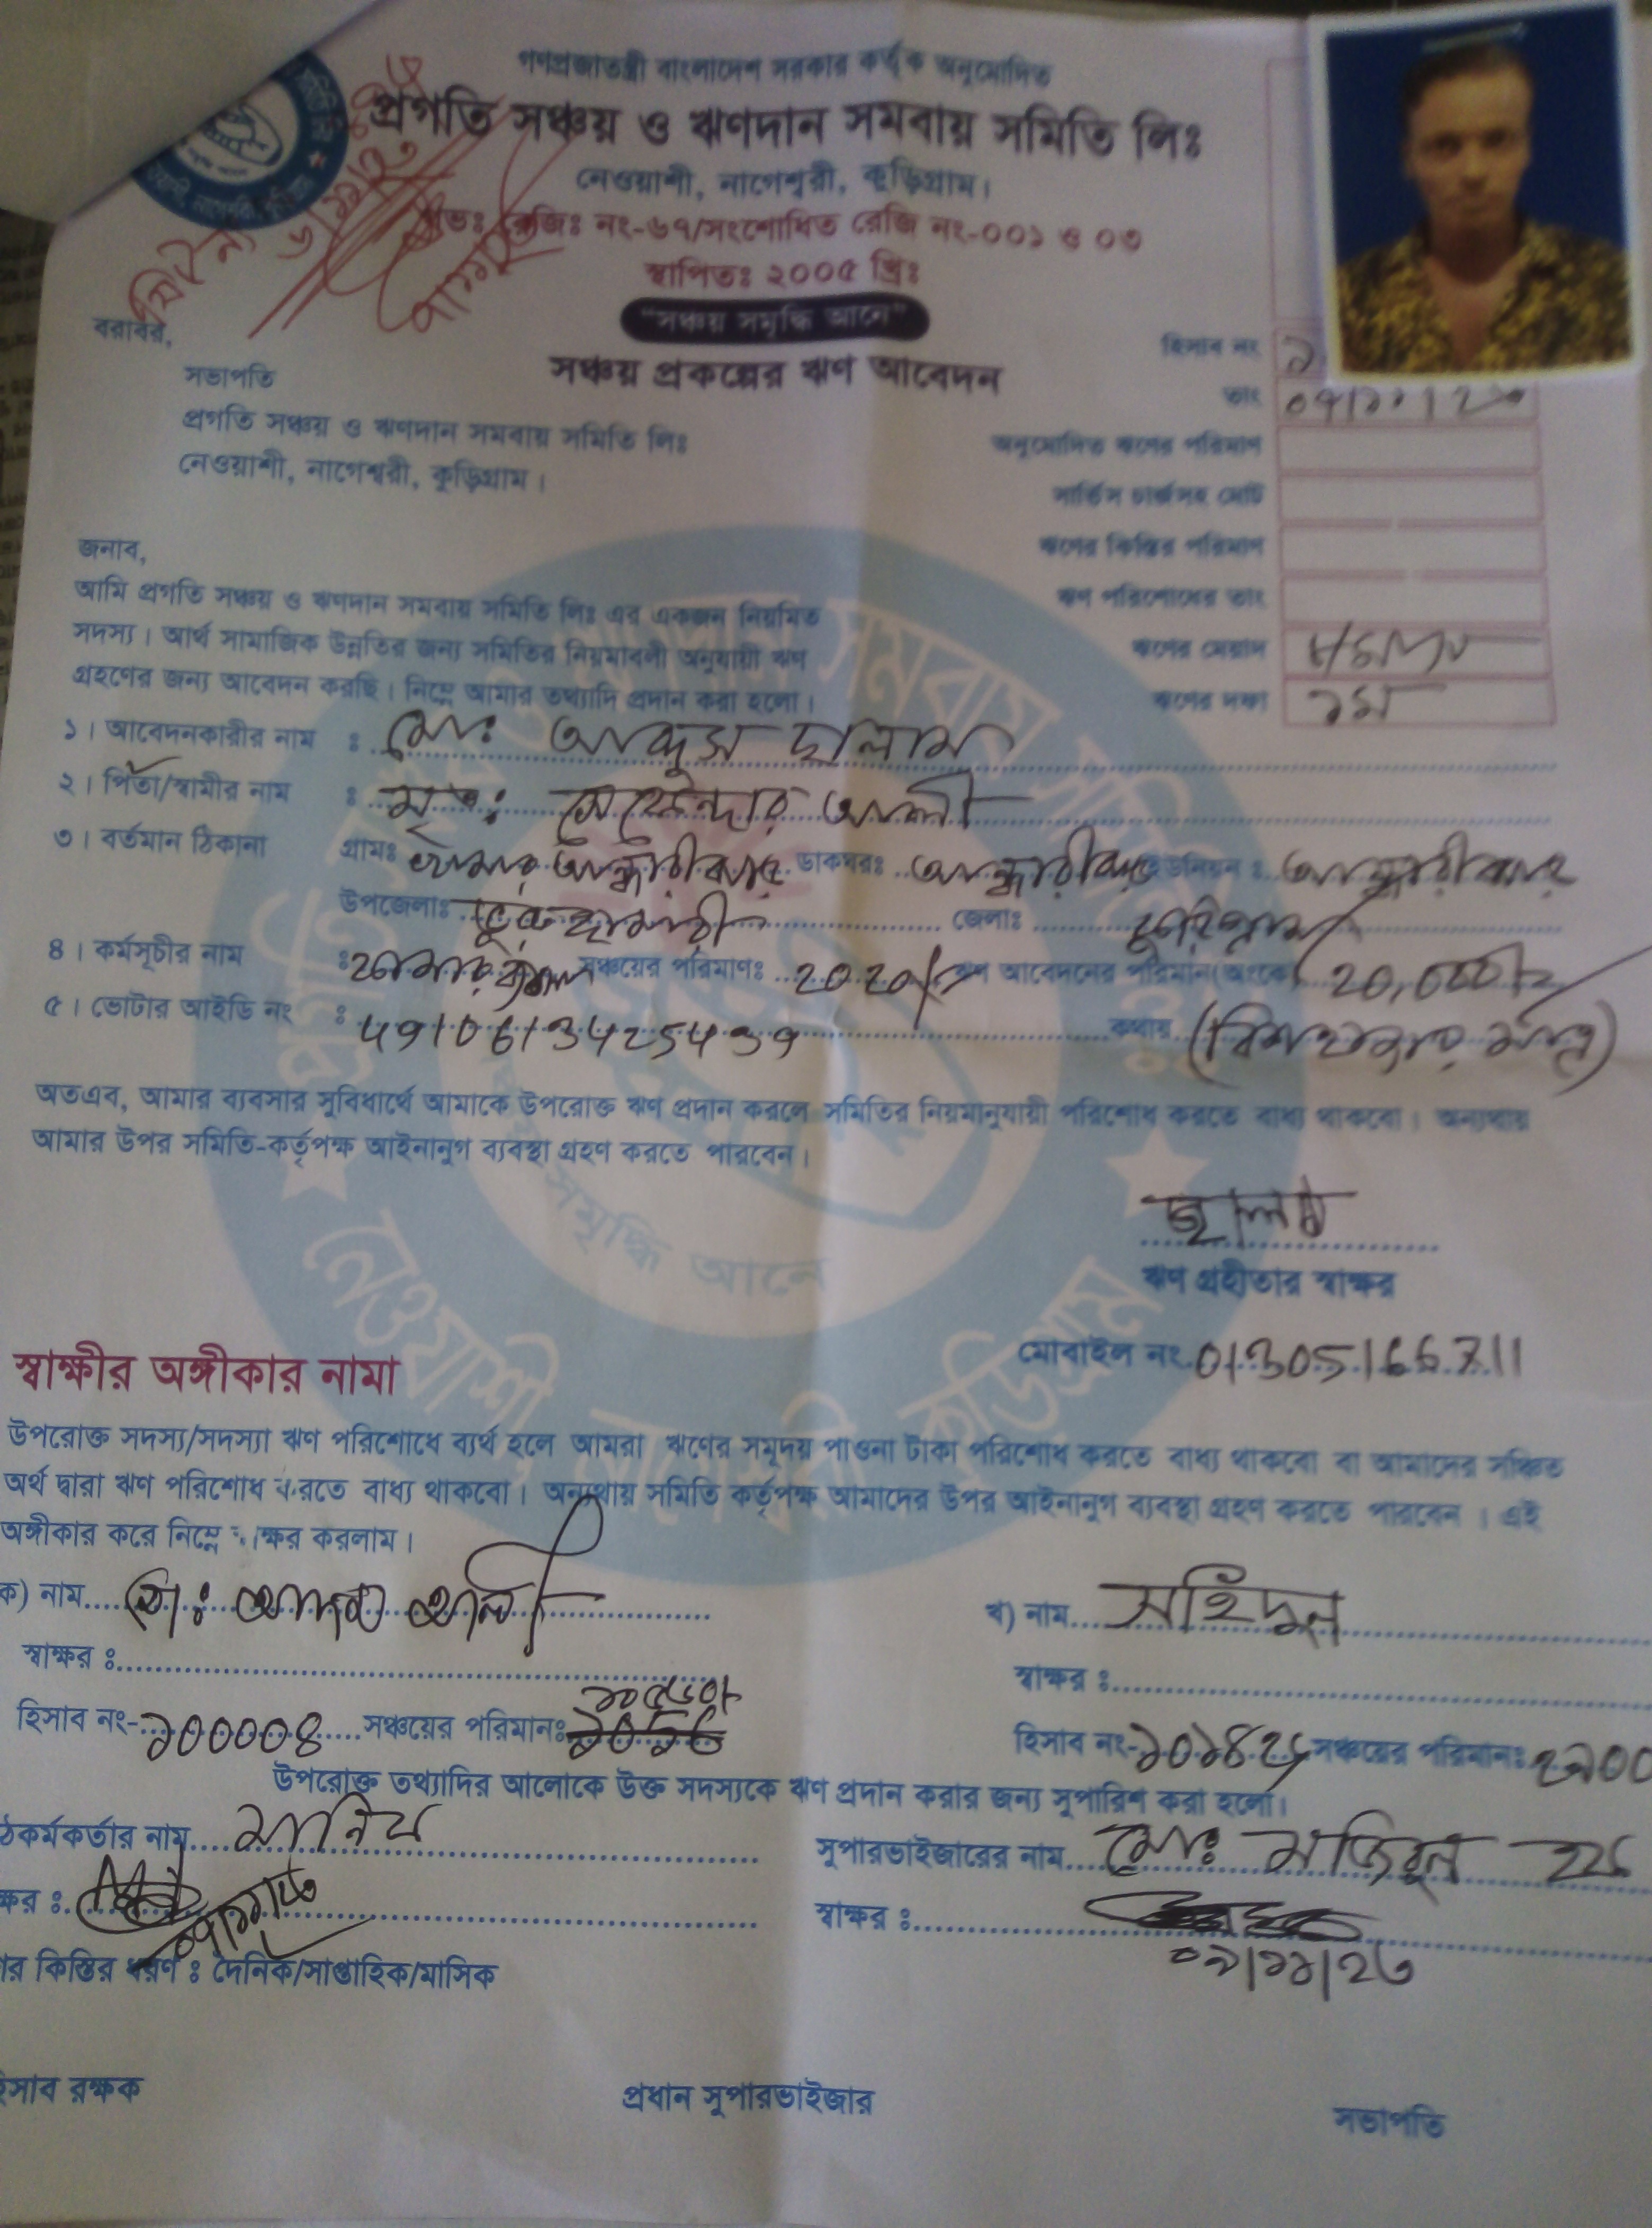 গণপ্রজাতন্ত্রী বাংলাদেশ সরকার কর্তৃক অনুমোদিত
প্রগতি সঞ্চয় ও ঋণদান সমবায় সমিতি লিঃ
নেওয়াশী, নাগেশ্বরী, কুড়িগ্রাম।
রেজিঃ নং-৬৭/সংশোধিত রেজি নং-০০১ ও ০৩
স্থাপিতঃ ২০০৫ খ্রিঃ
"সঞ্চয় সমৃদ্ধি আনে"
সঞ্চয় প্রকল্পের ঋণ আবেদন
বরাবর,
সভাপতি
প্রগতি সঞ্চয় ও ঋণদান সমবায় সমিতি লিঃ
নেওয়াশী, নাগেশ্বরী, কুড়িগ্রাম।
হিসাব নং
তাং
অনুমোদিত ঋণের পরিমাণ
সার্ভিস চার্জসহ মোট
ঋণের কিস্তির পরিমাণ
ঋণ পরিশোধের তাং
ঋণের মেয়াদ
ঋণের দফা ১ম
জনাব,
আমি প্রগতি সঞ্চয় ও ঋণদান সমবায় সমিতি লিঃ এর একজন নিয়মিত
সদস্য। আর্থ সামাজিক উন্নতির জন্য সমিতির নিয়মাবলী অনুযায়ী ঋণ
গ্রহণের জন্য আবেদন করছি। নিম্নে আমার তথ্যাদি প্রদান করা হলো।
১। আবেদনকারীর নাম : মোঃ আব্দুস ছালাম
২। পিতা/স্বামীর নাম : মৃতঃ সেকেন্দার আলী
৩। বর্তমান ঠিকানা গ্রামঃ খামার আন্ধারীঝাড় ডাকঘরঃ আন্ধারীঝাড় ইউনিয়ন : আন্ধারীঝাড়
উপজেলাঃ ভুরুঙ্গামারী জেলাঃ কুড়িগ্রাম
৪। কর্মসূচীর নাম : সঞ্চয়ের পরিমাণঃ 2020/= ঋণ আবেদনের পরিমান(অংকে) 20,000/=
৫। ভোটার আইডি নং : 4910613425439 কথায় (বিশ হাজার মাত্র)
অতএব, আমার ব্যবসার সুবিধার্থে আমাকে উপরোক্ত ঋণ প্রদান করলে সমিতির নিয়মানুযায়ী পরিশোধ করতে বাধ্য থাকবো। অন্যথায়
আমার উপর সমিতি-কর্তৃপক্ষ আইনানুগ ব্যবস্থা গ্রহণ করতে পারবেন।
ছালাম
ঋণ গ্রহীতার স্বাক্ষর
মোবাইল নং
স্বাক্ষীর অঙ্গীকার নামা
উপরোক্ত সদস্য/সদস্যা ঋণ পরিশোধে ব্যর্থ হলে আমরা ঋণের সমূদয় পাওনা টাকা পরিশোধ করতে বাধ্য থাকবো বা আমাদের সঞ্চিত
অর্থ দ্বারা ঋণ পরিশোধ করতে বাধ্য থাকবো। অন্যথায় সমিতি কর্তৃপক্ষ আমাদের উপর আইনানুগ ব্যবস্থা গ্রহণ করতে পারবেন। এই
অঙ্গীকার করে নিম্নে স্বাক্ষর করলাম।
ক) নাম আলী খ) নাম সহিদুল
স্বাক্ষর : স্বাক্ষর :
হিসাব নং- ১০০০০৪ সঞ্চয়ের পরিমানঃ হিসাব নং- সঞ্চয়ের পরিমানঃ
উপরোক্ত তথ্যাদির আলোকে উক্ত সদস্যকে ঋণ প্রদান করার জন্য সুপারিশ করা হলো।
ঠকর্মকর্তার নাম মানিক সুপারভাইজারের নাম মোঃ মজিবুল হক
ক্ষর : স্বাক্ষর :
০৯/১১/২৩
কিস্তির ধরণ : দৈনিক/সাপ্তাহিক/মাসিক
হিসাব রক্ষক প্রধান সুপারভাইজার সভাপতি